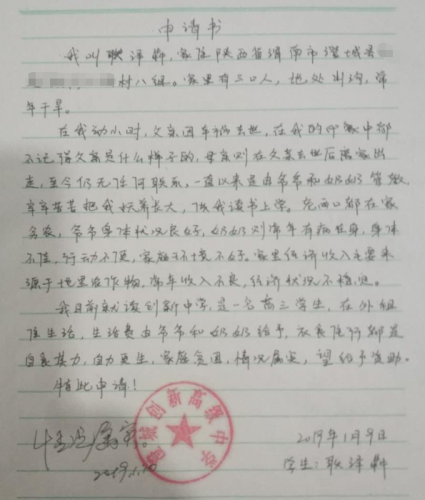 申请书
我叫耿泽群，家住陕西省渭南市澄城县
村八组。家里有三口人，地处山沟，常
年干旱。
在我幼小时，父亲因车祸去世，在我的印象中都
不记得父亲是什么样子的，母亲则在父亲去世后离家出
走，至今仍无任何联系，一直以来是由爷爷和奶奶管教，
辛辛苦苦把我抚养长大，供我读书上学。老两口都在家
务农，爷爷身体状况良好，奶奶则常年有病在身，身体
不佳，行动不便，家庭环境不好。家里经济收入主要来
源于地里农作物，常年收入不良，经济状况不稳定。
我目前就读创新中学，是一名高三学生，在外租
住生活，生活费由爷爷和奶奶给予，衣食住行都是
自食其力，自力更生，家庭贫困，情况属实，望给予资助。
特此申请！
澄城创新高级中学
情况属实。
2019年1月9日
2019.1.10
学生：耿泽